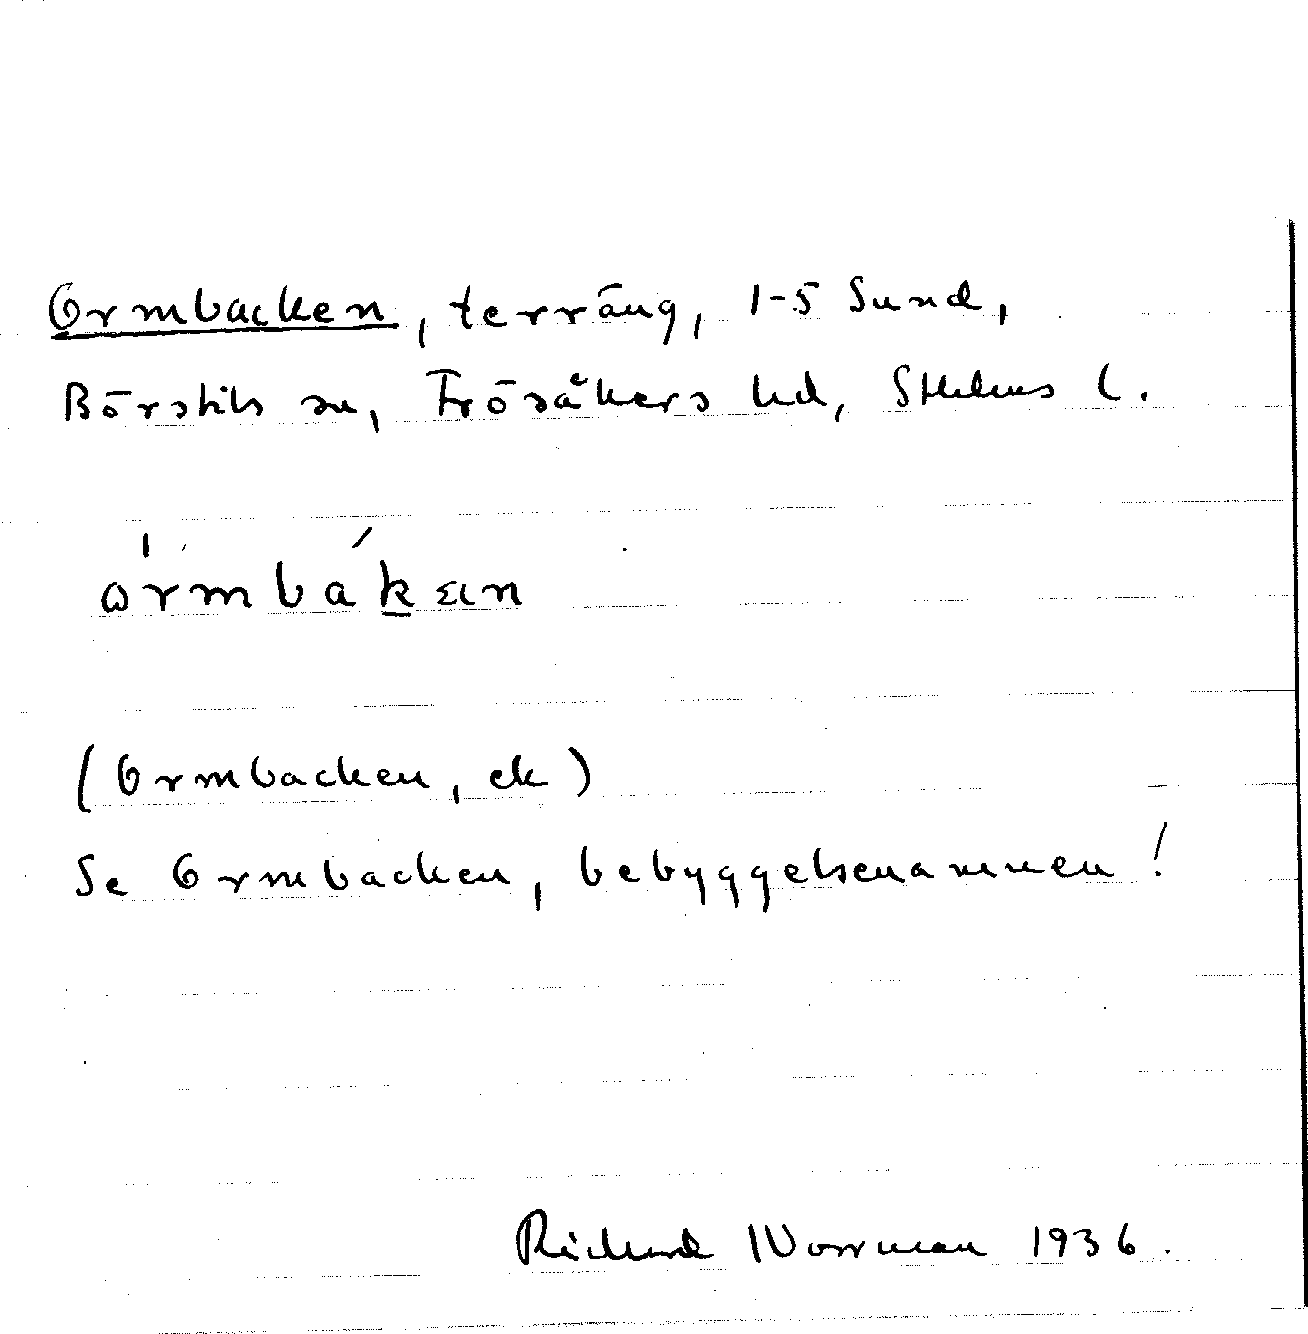 Ormbacken, terräng, 1-5 Sund,
Börstils sn, Frösåkers hd, Sthlms l.
ɷ̀rmbák̲ɛn
(Ormbacken, ek)
Se Ormbacken, bebyggelsenamnen!
Richard Norrman 1936.